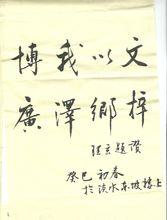 博我以文
廣澤鄉梓
題贈
癸巳初春
於淡水東坡樓上